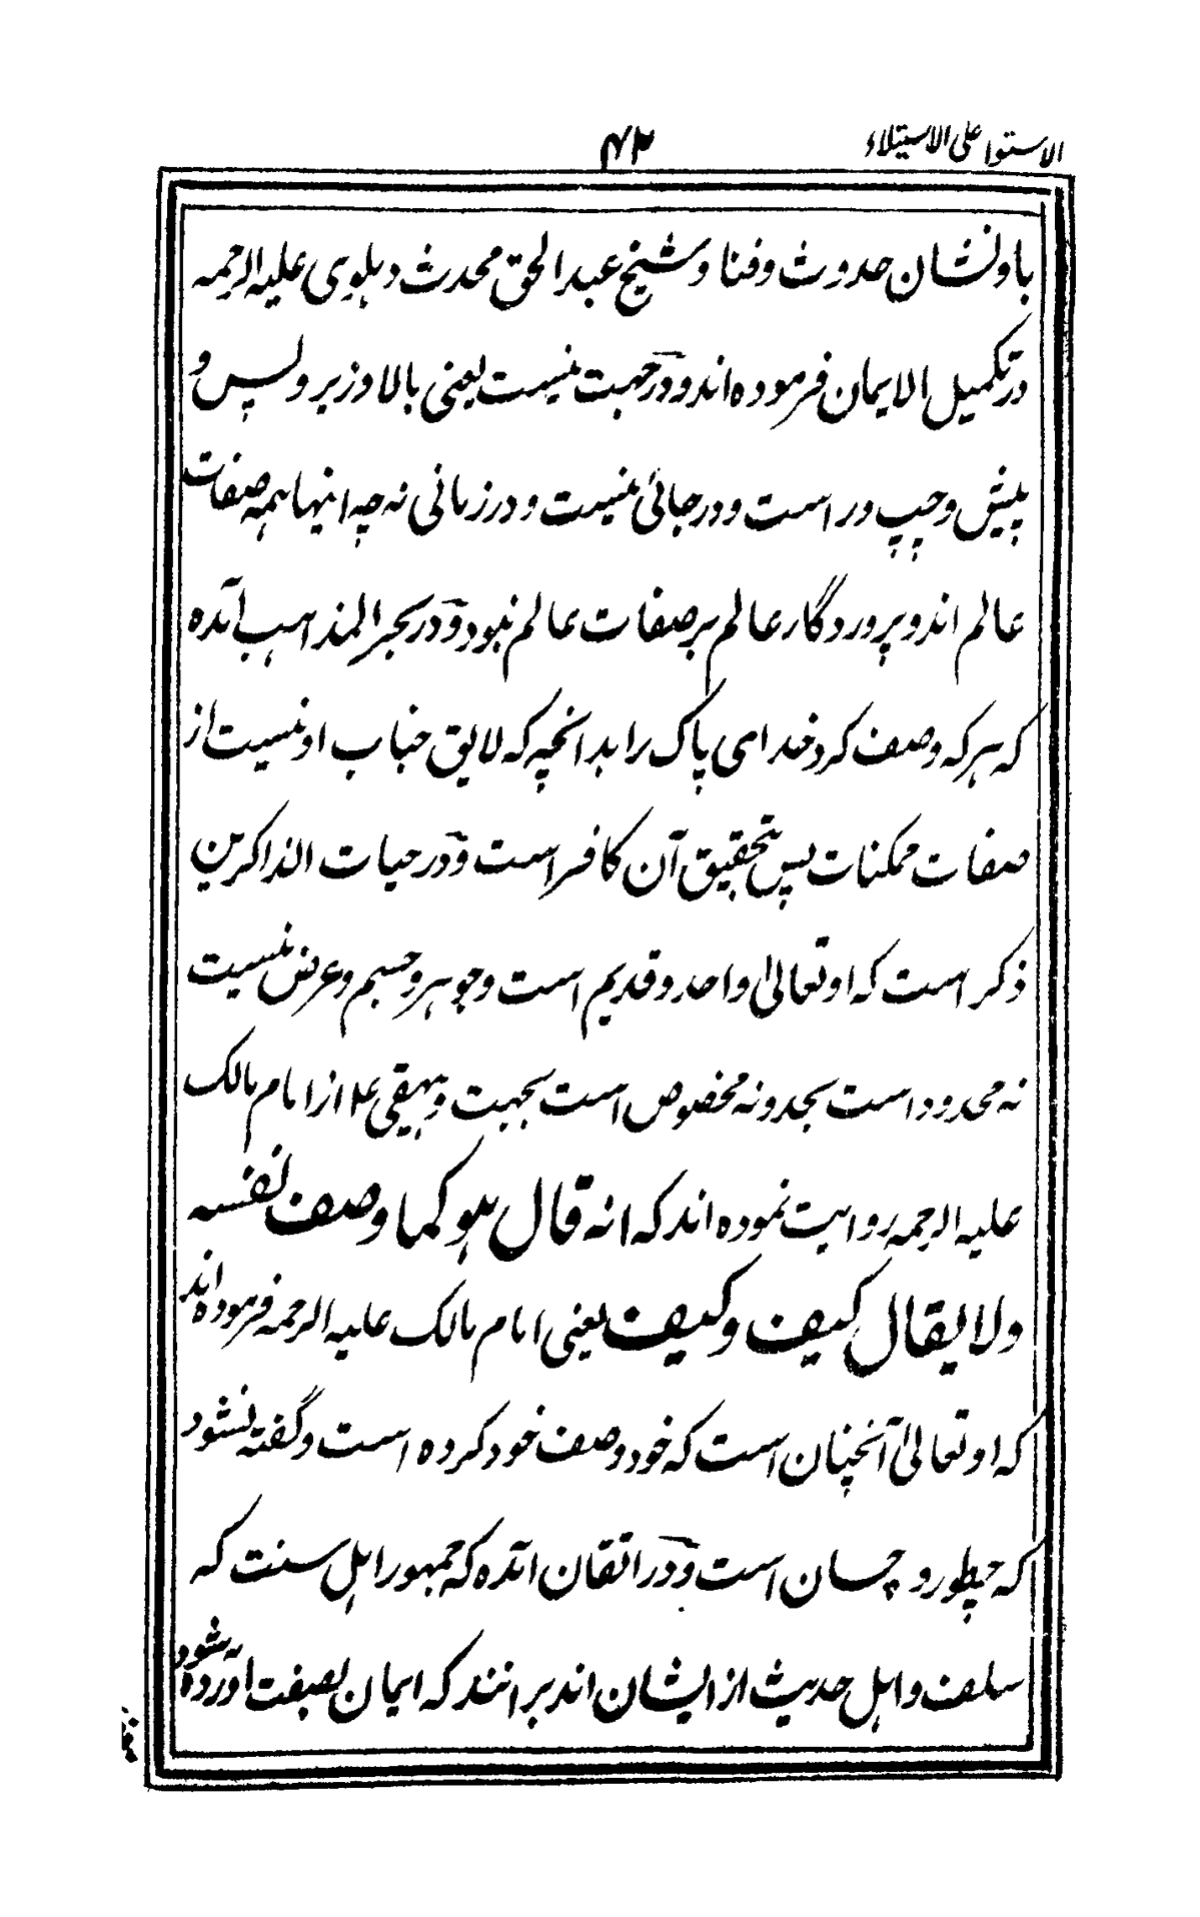 الاستوا علی الاستیلاء
۴۲
باو نشان حدوث و فنا و شیخ عبد الحق محدث دہلوی علیه الرحمه
در تکمیل الایمان فرموده اند و در جهت نیست یعنی بالا و زیر و پس و
پیش و چپ و راست و در جائی نیست و در زمانی نه چه اینها همه صفات
عالم اند و پروردگار عالم بر صفات عالم نبود و در بحر المذاهب آمده
که هر که وصف کرد خدای پاک را بدانچه که لایق جناب او نیست از
صفات ممکنات پس بتحقیق آن کافر است و در حیات الذاکرین
ذکر است که او تعالیٰ واحد و قدیم است و جوهر و جسم و عرض نیست
نه محدود است بحد و نه مخصوص است بجهت و بیهقی ع از امام مالک
علیه الرحمه روایت نموده اند که انه قال هو کما وصف نفسه
ولا یقال کیف و کیف یعنی امام مالک علیه الرحمه فرموده اند
که او تعالیٰ آنچنان است که خود وصف خود کرده است و گفته نشود
که چطور و چسان است و در اتقان آمده که جمهور اهل سنت که
سلف و اهل حدیث از ایشان اند بر انند که ایمان بصفت آورده شود